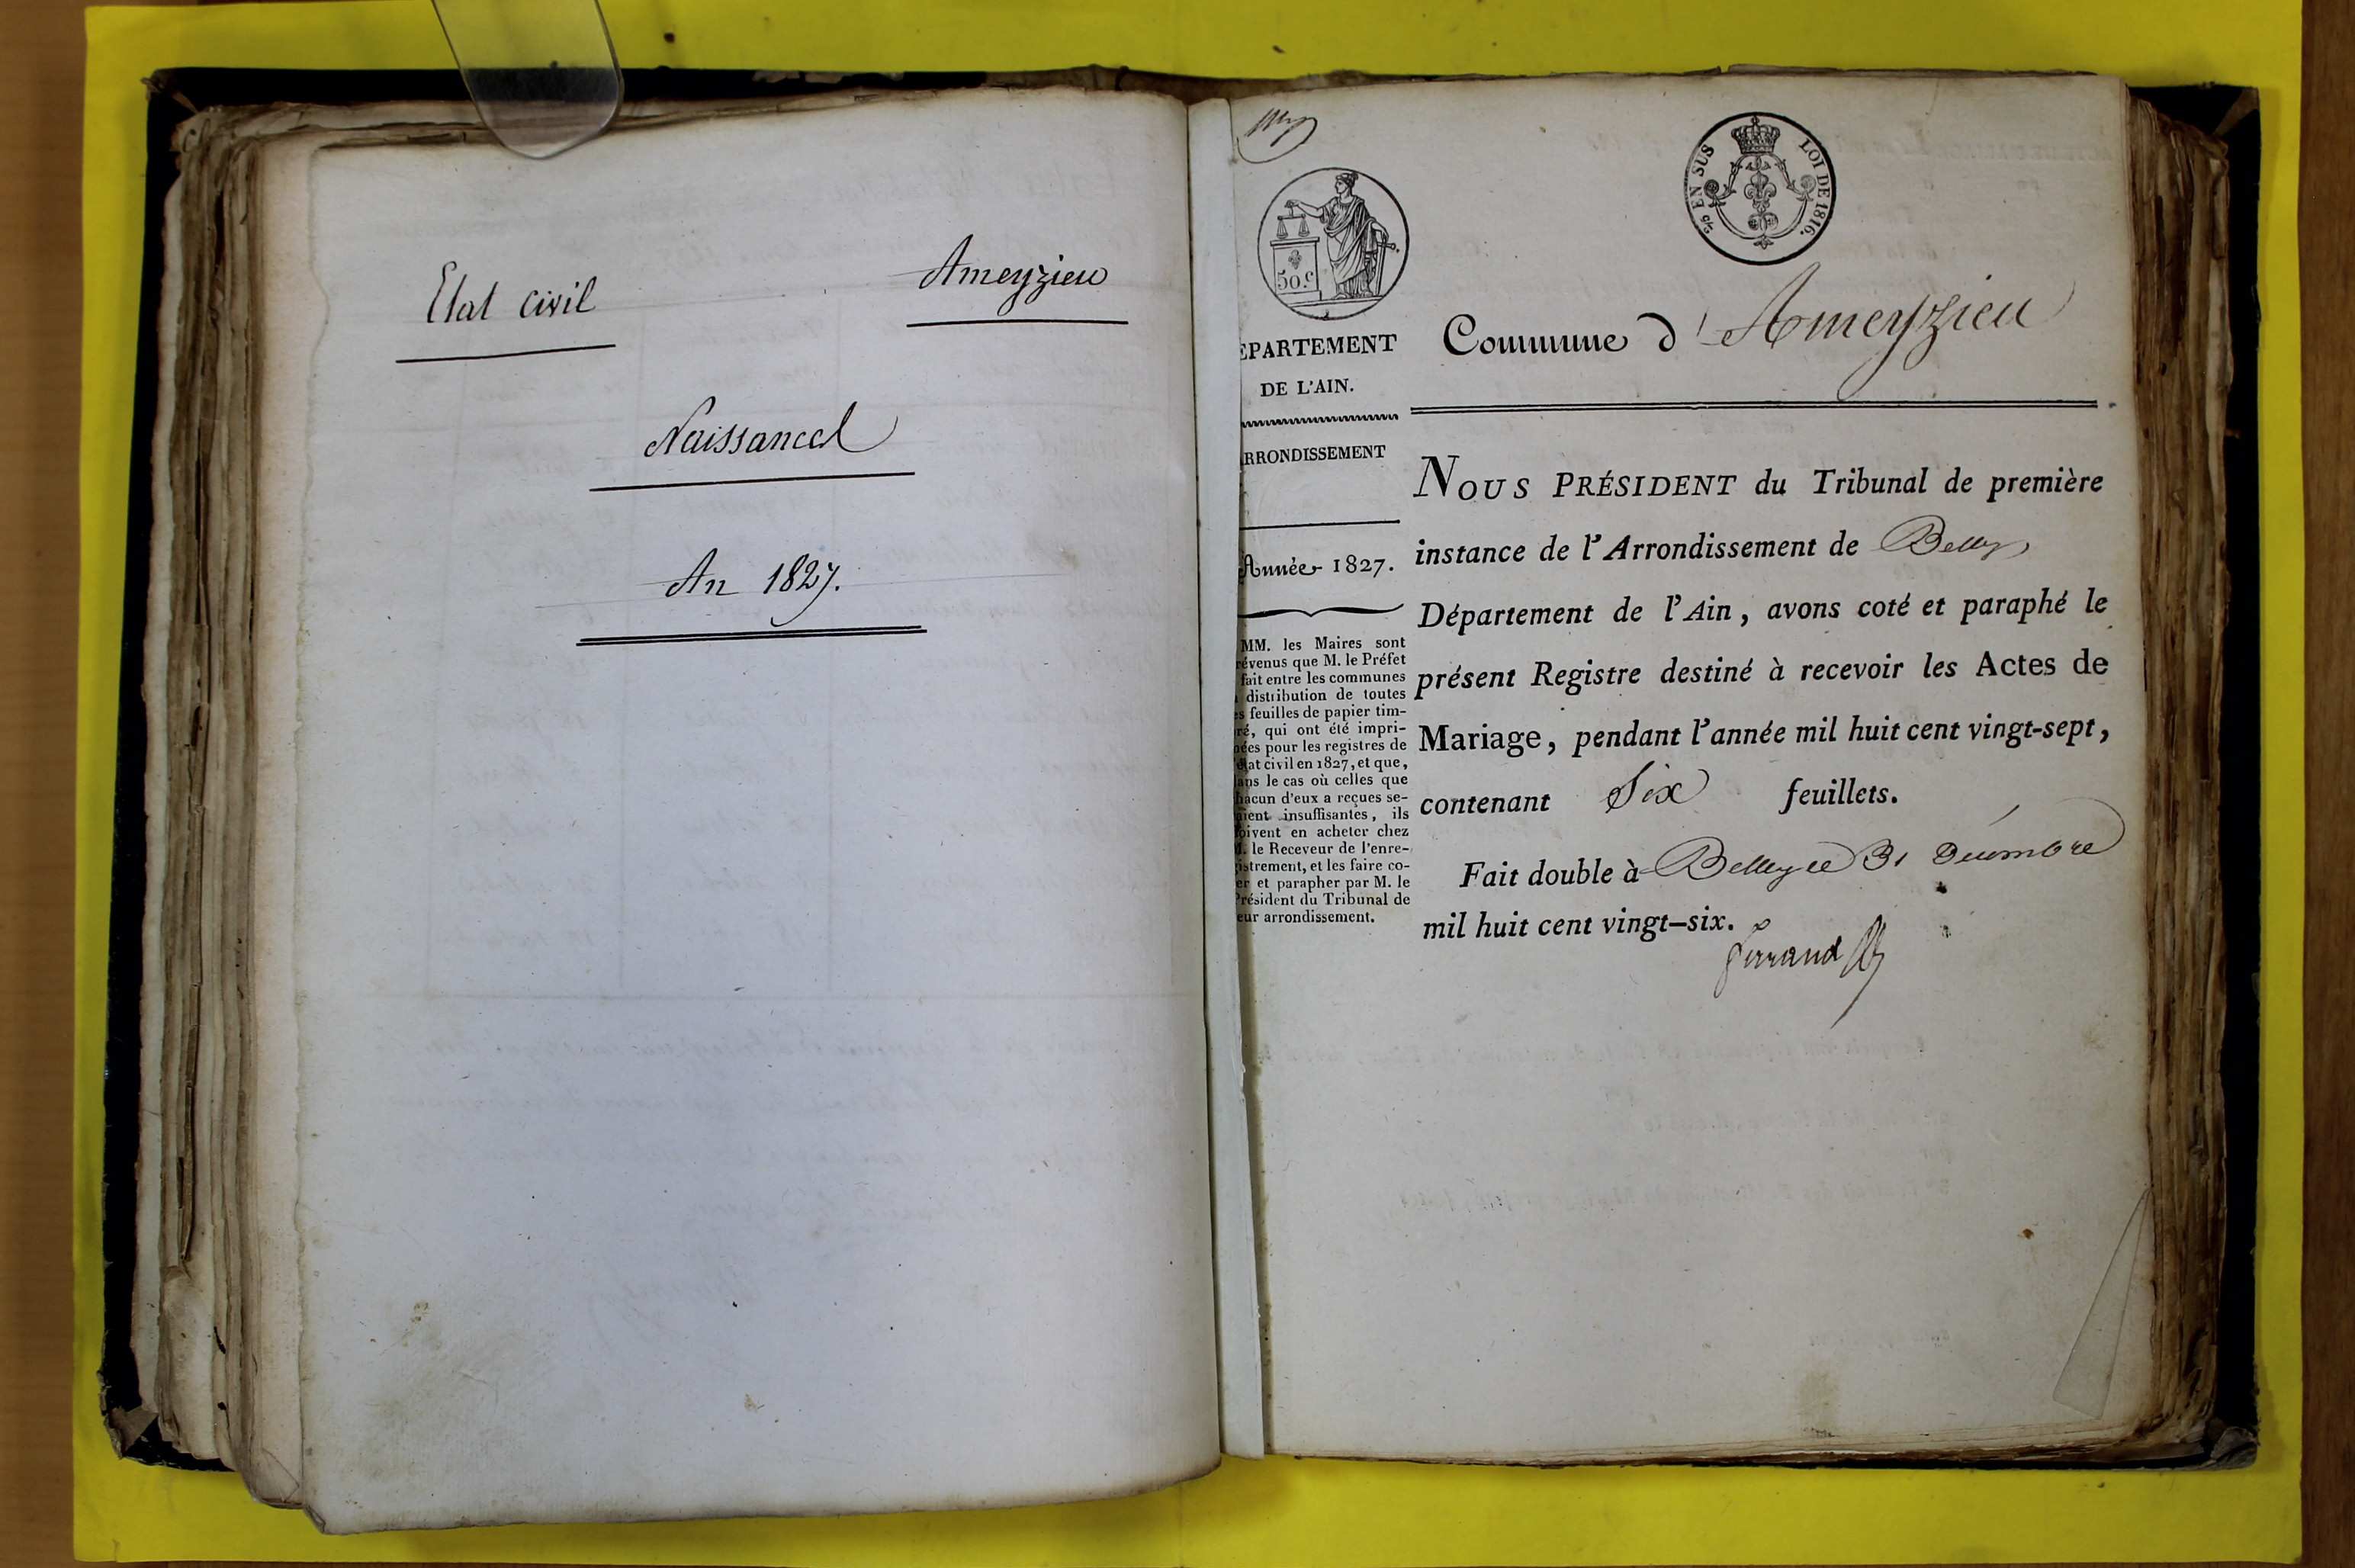 Etat civil
Ameyzieu
Naissances
An 1827.
50.c
5/c EN SUS LOI DE 1816.
EPARTEMENT
DE L'AIN.
RRONDISSEMENT
Année 1827.
MM. les Maires sont
révenus que M. le Préfet
fait entre les communes
distribution de toutes
es feuilles de papier tim-
ré, qui ont été impri-
ées pour les registres de
tat civil en 1827, et que,
ans le cas où celles que
hacun d'eux a reçues se-
aient insuffisantes, ils
oivent en acheter chez
M. le Receveur de l'enre-
istrement, et les faire co-
er et parapher par M. le
Président du Tribunal de
eur arrondissement.
Commune d'Ameyzieu
NOUS PRÉSIDENT du Tribunal de première
instance de l'Arrondissement de Belley
Département de l'Ain, avons coté et paraphé le
présent Registre destiné à recevoir les Actes de
Mariage, pendant l'année mil huit cent vingt-sept,
contenant Six feuillets.
Fait double à Belley ce 31 Decembre
mil huit cent vingt-six.